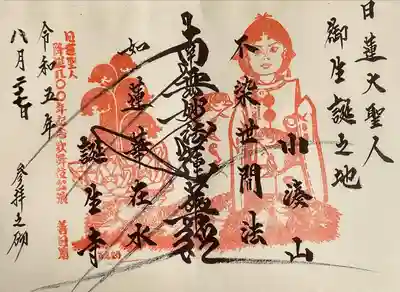 日蓮大聖人
御生誕之地
小湊山
不染世間法
南無妙法蓮華経
如蓮華在水
誕生寺
日蓮聖人
降誕八〇〇年記念
令和五年
八月
参拝之砌